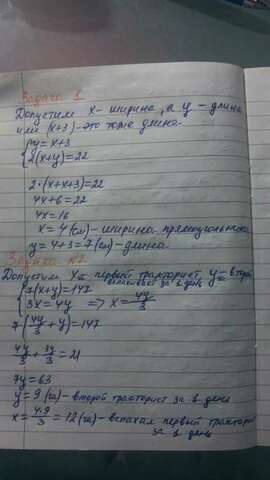 Задача 1
Допустим x - ширина, а y - длина
или (x+3) - это тоже длина
{y = x+3
{2(x+y)=22
2·(x+x+3)=22
4x+6=22
4x=16
x = 4 (см) - ширина прямоугольника
y = 4+3=7 (см) - длина
Задача №2
Допустим x - первый тракторист, y - второй
вспахивает за 1 день
{7(x+y)=147
{3x = 4y => x = 4y/3
7(4y/3 + y) = 147
4y/3 + 3y/3 = 21
7y = 63
y = 9 (га) - второй тракторист за 1 день
x = 4·9/3 = 12 (га) - вспахал первый тракторист
за 1 день